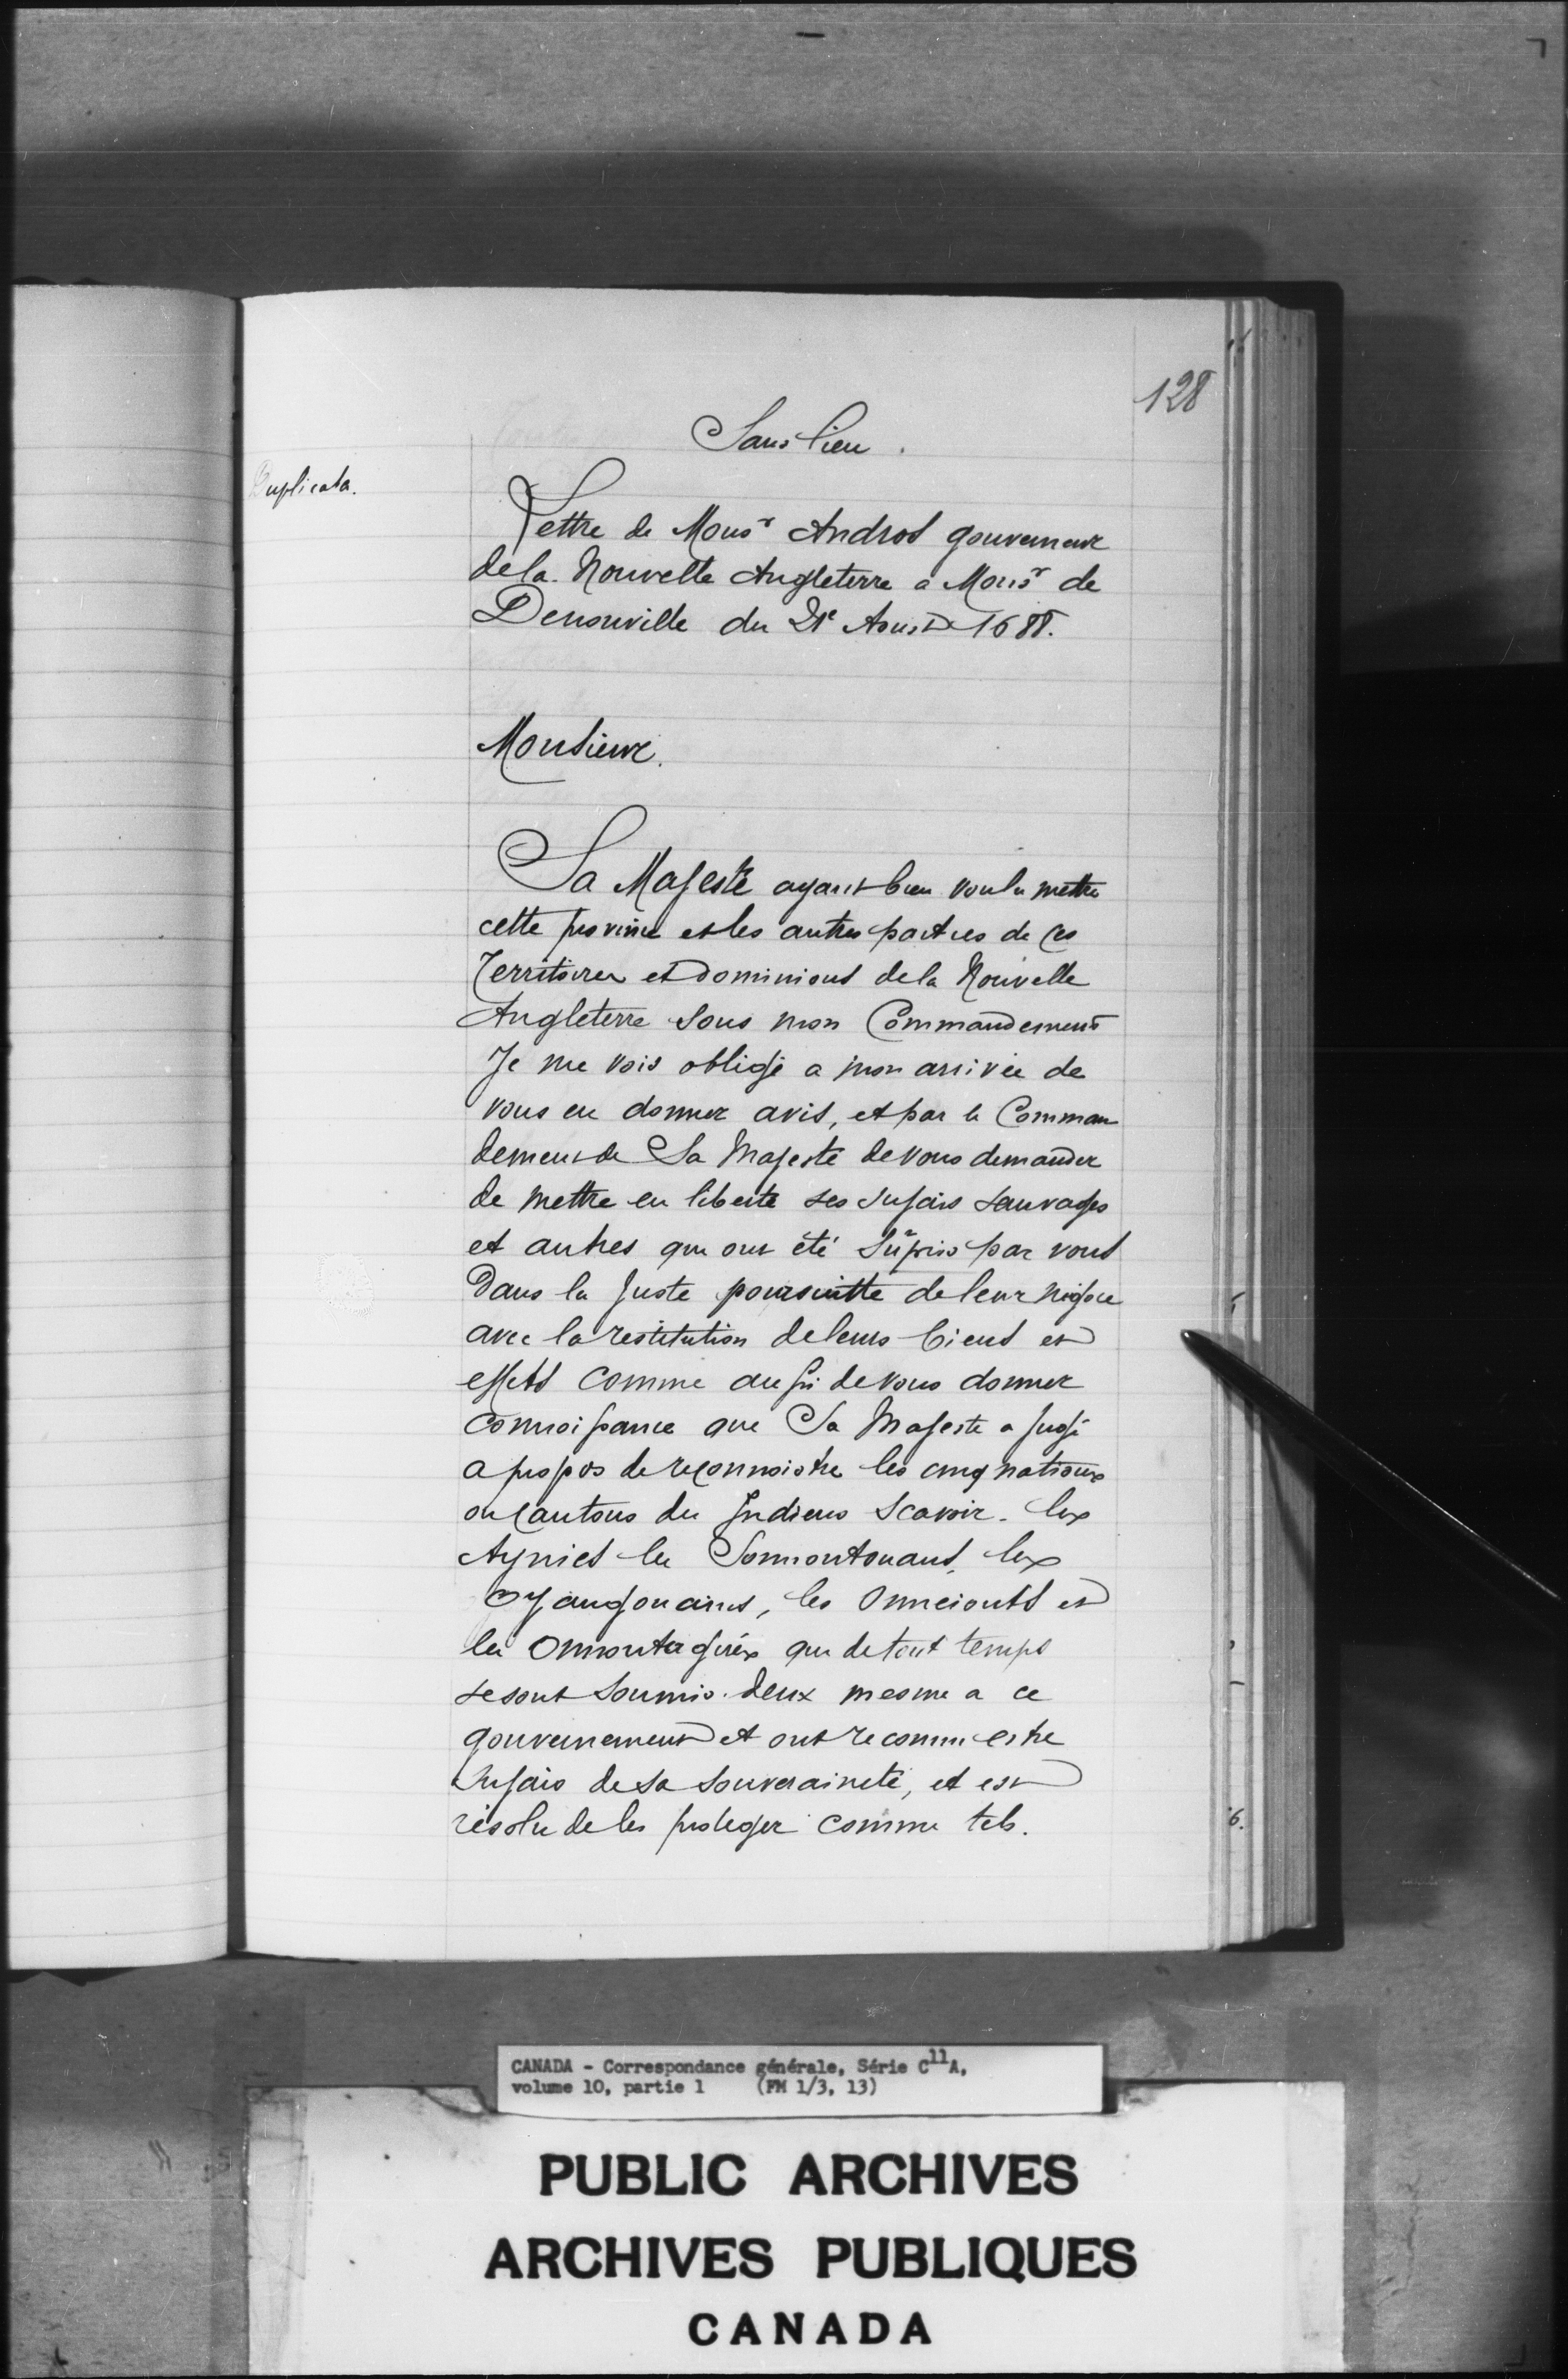 128
Sans lieu.
Duplicata.
Lettre de Monsr Andros gouverneur
de la Nouvelle Angleterre a Monsr de
Denonville du 21e Aoust 1688.
Monsieur.
Sa Majesté ayant bien voulu mettre
cette province et les autres parties de ces
Territoires et dominions de la Nouvelle
Angleterre sous mon Commandement
Je me vois obligé a mon arrivée de
vous en donner avis, et par le Comman
dement de Sa Majesté de vous demander
de mettre en liberté ses sujais sauvages
et autres qui ont été surpris par vous
Dans la juste poursuitte de leur négoce
avec la restitution de leurs biens et
effets comme aussi de vous donner
connoissance que Sa Majesté a jugé
a propos de reconnoistre les cinq nations
ou Cantons des Indiens scavoir. les
Aynies les Sonnontouans, les
Oyaugouains, les Onneiouts et
les Onnontaguéx qui de tout temps
se sont soumis deux mesme a ce
gouvernement et ont reconnu estre
sujais de sa souveraineté, et est
résolu de les proteger comme tels.
6.
CANADA - Correspondance générale, Série C11A,
volume 10, partie 1 (FM 1/3, 13)
PUBLIC ARCHIVES
ARCHIVES PUBLIQUES
CANADA